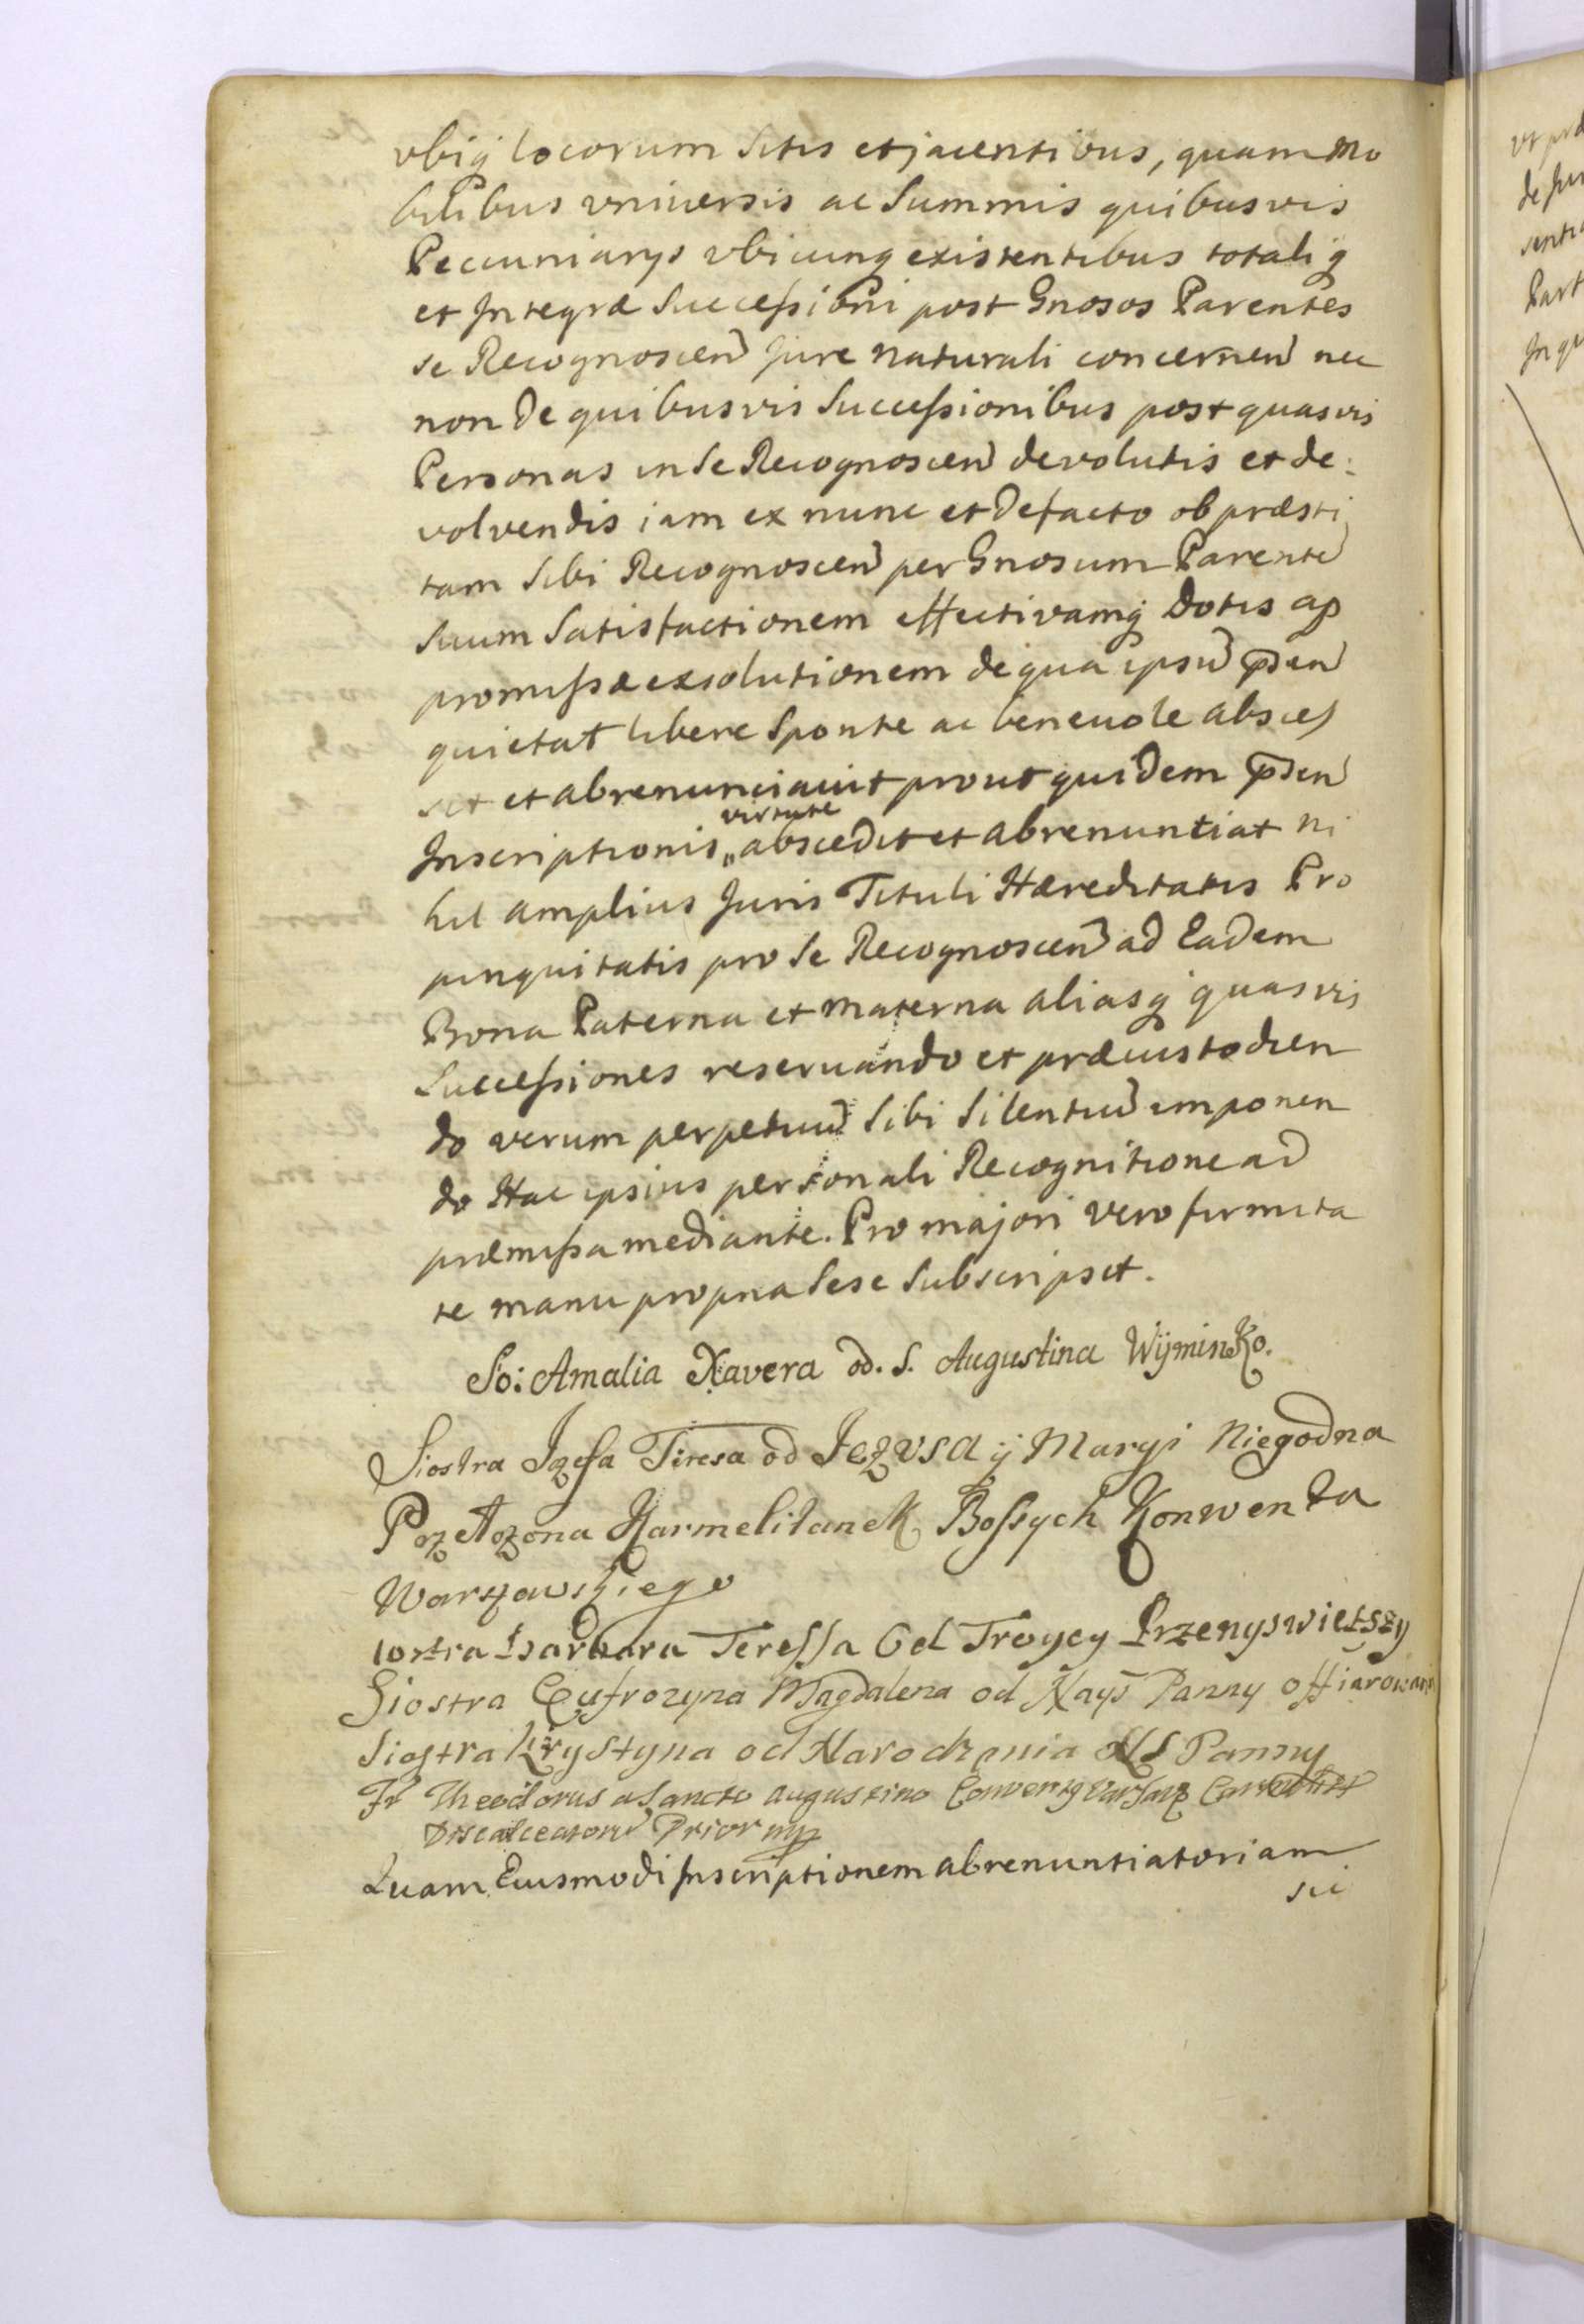 vbiq locorum Sitis et jacentibus, quam Mo
bilibus vniuersis ac Summis quibusvis
Pecuniarys vbicunq existentibus totaliq
et Integræ Successioni post Gnosos Parentes
se Recognoscen Jure naturali concernen nec
non De quibusvis Successionibus post quasvis
Personas in Se Recognoscen devolutis et de:
volvendis iam ex nunc et Defacto ob præsti
tam Sibi Recognoscen per Gnosum Parente
Suum Satisfactionem effectivamq Dotis ap
promissæ exsolutionem de qua ipsu psen
quietat libere Sponte ac beneuole absces
sit et abrenunciavit prout quidem psen
virtute
Inscriptionis „ abscedit et abrenuntiat ni
hil amplius Juris Tituli Hæreditatis Pro
pinquitatis pro Se Recognoscen ad Eadem
Bona Paterna et Materna aliasq quasvis
Successiones reseruando et præcustodien
do verum perpetuu Sibi Silentiu imponen
do Hac ipsius personali Recognitione ad
præmissa mediante. Pro majori vero firmita
te manu propria Sese Subscripsit.
So: Amalia Xavera od. S. Augustina WÿminKo.
Siostra Jzefa Tiresa od Jezvsa ÿ Maryi Niegodna
Przełozona KarmelitaneK Bossych Konwenta
Warszawskiego
iostra Barbara Teressa Od Troycy Przenyswietszy
Siostra Eufrozyna Magdalena od Nays Panny offiarowani
Siostra Krystyna od Narodzenia NS Panny
Fr Theodorus a Sancto Augustino
Discalceatoru Prior mp
Quam Eiusmodi Inscriptionem abrenuntiatoriam
sic
vt præ
Part